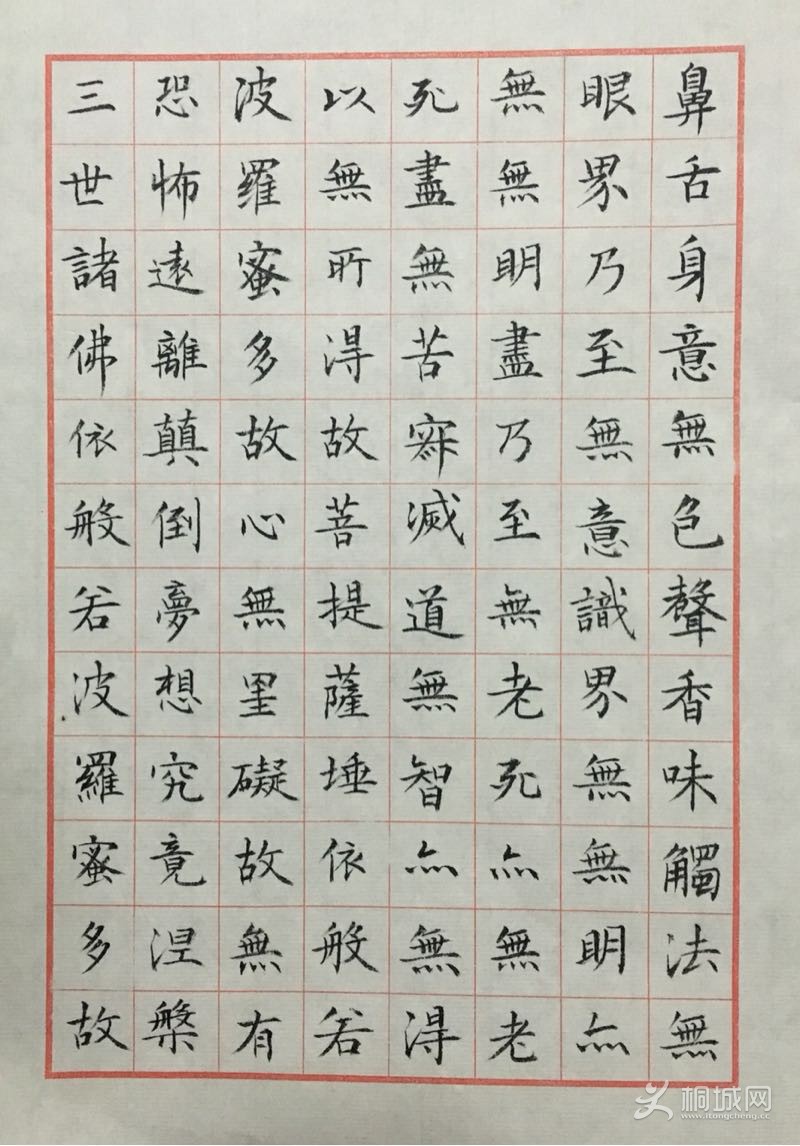 鼻舌身意無色聲香味觸法無
眼界乃至無意識界無無明亦
無無明盡乃至無老死亦無老
死盡無苦寂滅道無智亦無得
以無所得故菩提薩埵依般若
波羅蜜多故心無罣礙故無有
恐怖遠離顛倒夢想究竟涅槃
三世諸佛依般若波羅蜜多故
桐城网
www.itongcheng.cc